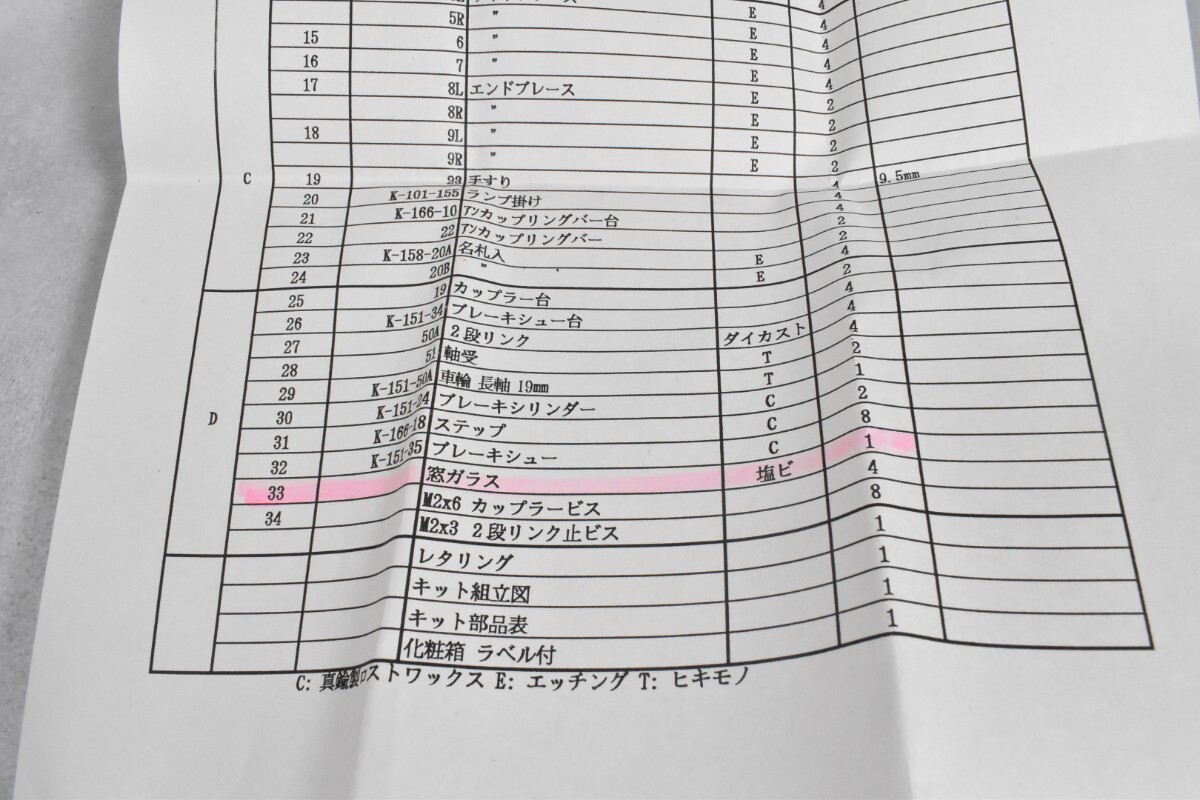 E 4
5R 〃 E 4
15 6 〃 E 4
16 7 〃 E 4
17 8L エンドブレース E 2
8R 〃 E 2
18 9L 〃 E 2
9R 〃 E 2
C 19 23 手すり 4 9.5mm
20 K-101-155 ランプ掛け 4
21 K-166-10 アンカップリングバー台 4
22 22 アンカップリングバー 2
23 K-158-20A 名札入 E 2
24 20B 〃 E 4
25 19 カップラー台 2
26 K-151-34 ブレーキシュー台 4
27 50A 2段リンク ダイカスト 4
28 51 軸受 T 4
29 K-151-50A 車輪 長軸 19mm T 2
D 30 K-151-24 ブレーキシリンダー C 1
31 K-166-18 ステップ C 2
32 K-151-35 ブレーキシュー C 8
33 窓ガラス 塩ビ 1
34 M2x6 カップラービス 4
M2x3 2段リンク止ビス 8
レタリング 1
キット組立図 1
キット部品表 1
化粧箱 ラベル付 1
C: 真鍮製ロストワックス E: エッチング T: ヒキモノ